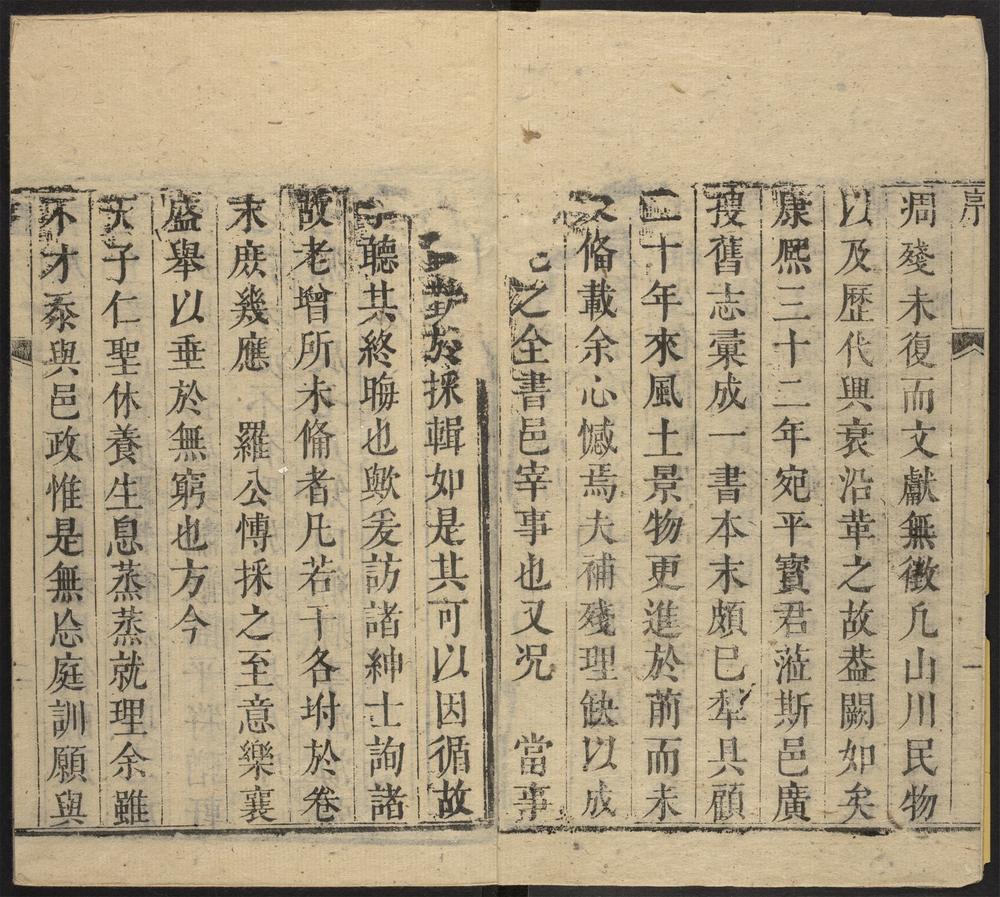 序
凋殘未復而文獻無徵凢山川民物
以及歷代興衰沿革之故葢闕如矣
康熈三十二年宛平竇君蒞斯邑廣
搜舊志彚成一書本末頗已犁具顧
二十年來風土景物更進於前而未
偹載余心憾焉夫補殘理缺以成
之全書邑宰事也又况 當事
於採輯如是其可以因循故
聽其終晦也歟爰訪諸紳士詢諸
故老增所未偹者凡若干各坿於卷
末庶幾應 羅公愽採之至意樂襄
盛舉以垂於無窮也方今
天子仁聖休養生息蒸蒸就理余雖
不才忝與邑政惟是無忝庭訓願與
一